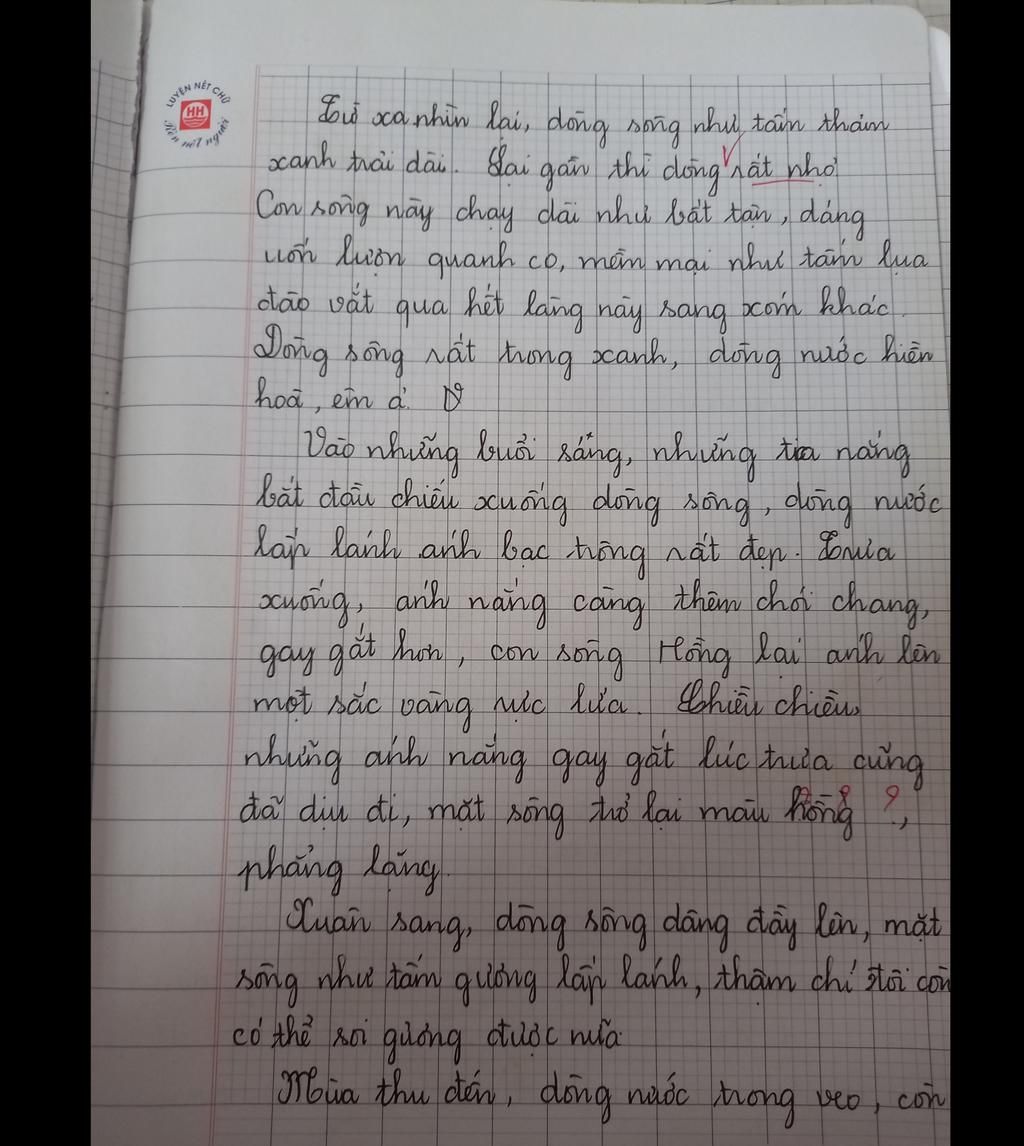 LUYỆN NÉT CHỮ
HH
Rèn nết người
Từ xa nhìn lại, dòng sông như tấm thảm
xanh trải dài. Lại gần thì dòng rất nhỏ
Con sông này chạy dài như bất tận, dáng
uốn lượn quanh co, mềm mại như tấm lụa
đào vắt qua hết làng này sang xóm khác.
Dòng sông rất trong xanh, dòng nước hiền
hoà, êm ả.
Vào những buổi sáng, những tia nắng
bắt đầu chiếu xuống dòng sông, dòng nước
lấp lánh ánh bạc trông rất đẹp. Trưa
xuống, ánh nắng càng thêm chói chang,
gay gắt hơn, con sông Hồng lại ánh lên
một sắc vàng rực lửa. Chiều chiều,
những ánh nắng gay gắt lúc trưa cũng
đã dịu đi, mặt sông trở lại màu hồng ?,
phẳng lặng.
Xuân sang, dòng sông dâng đầy lên, mặt
sông như tấm gương lấp lánh, thậm chí tôi còn
có thể soi gương được nữa.
Mùa thu đến, dòng nước trong veo, còn